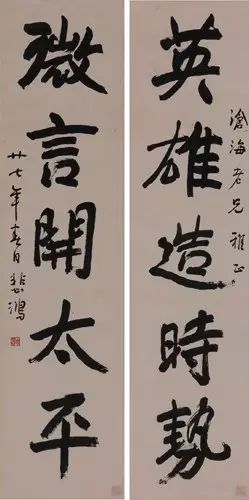 滄海老兄 雅正
英雄造時勢
微言開太平
廿七年春日悲鴻